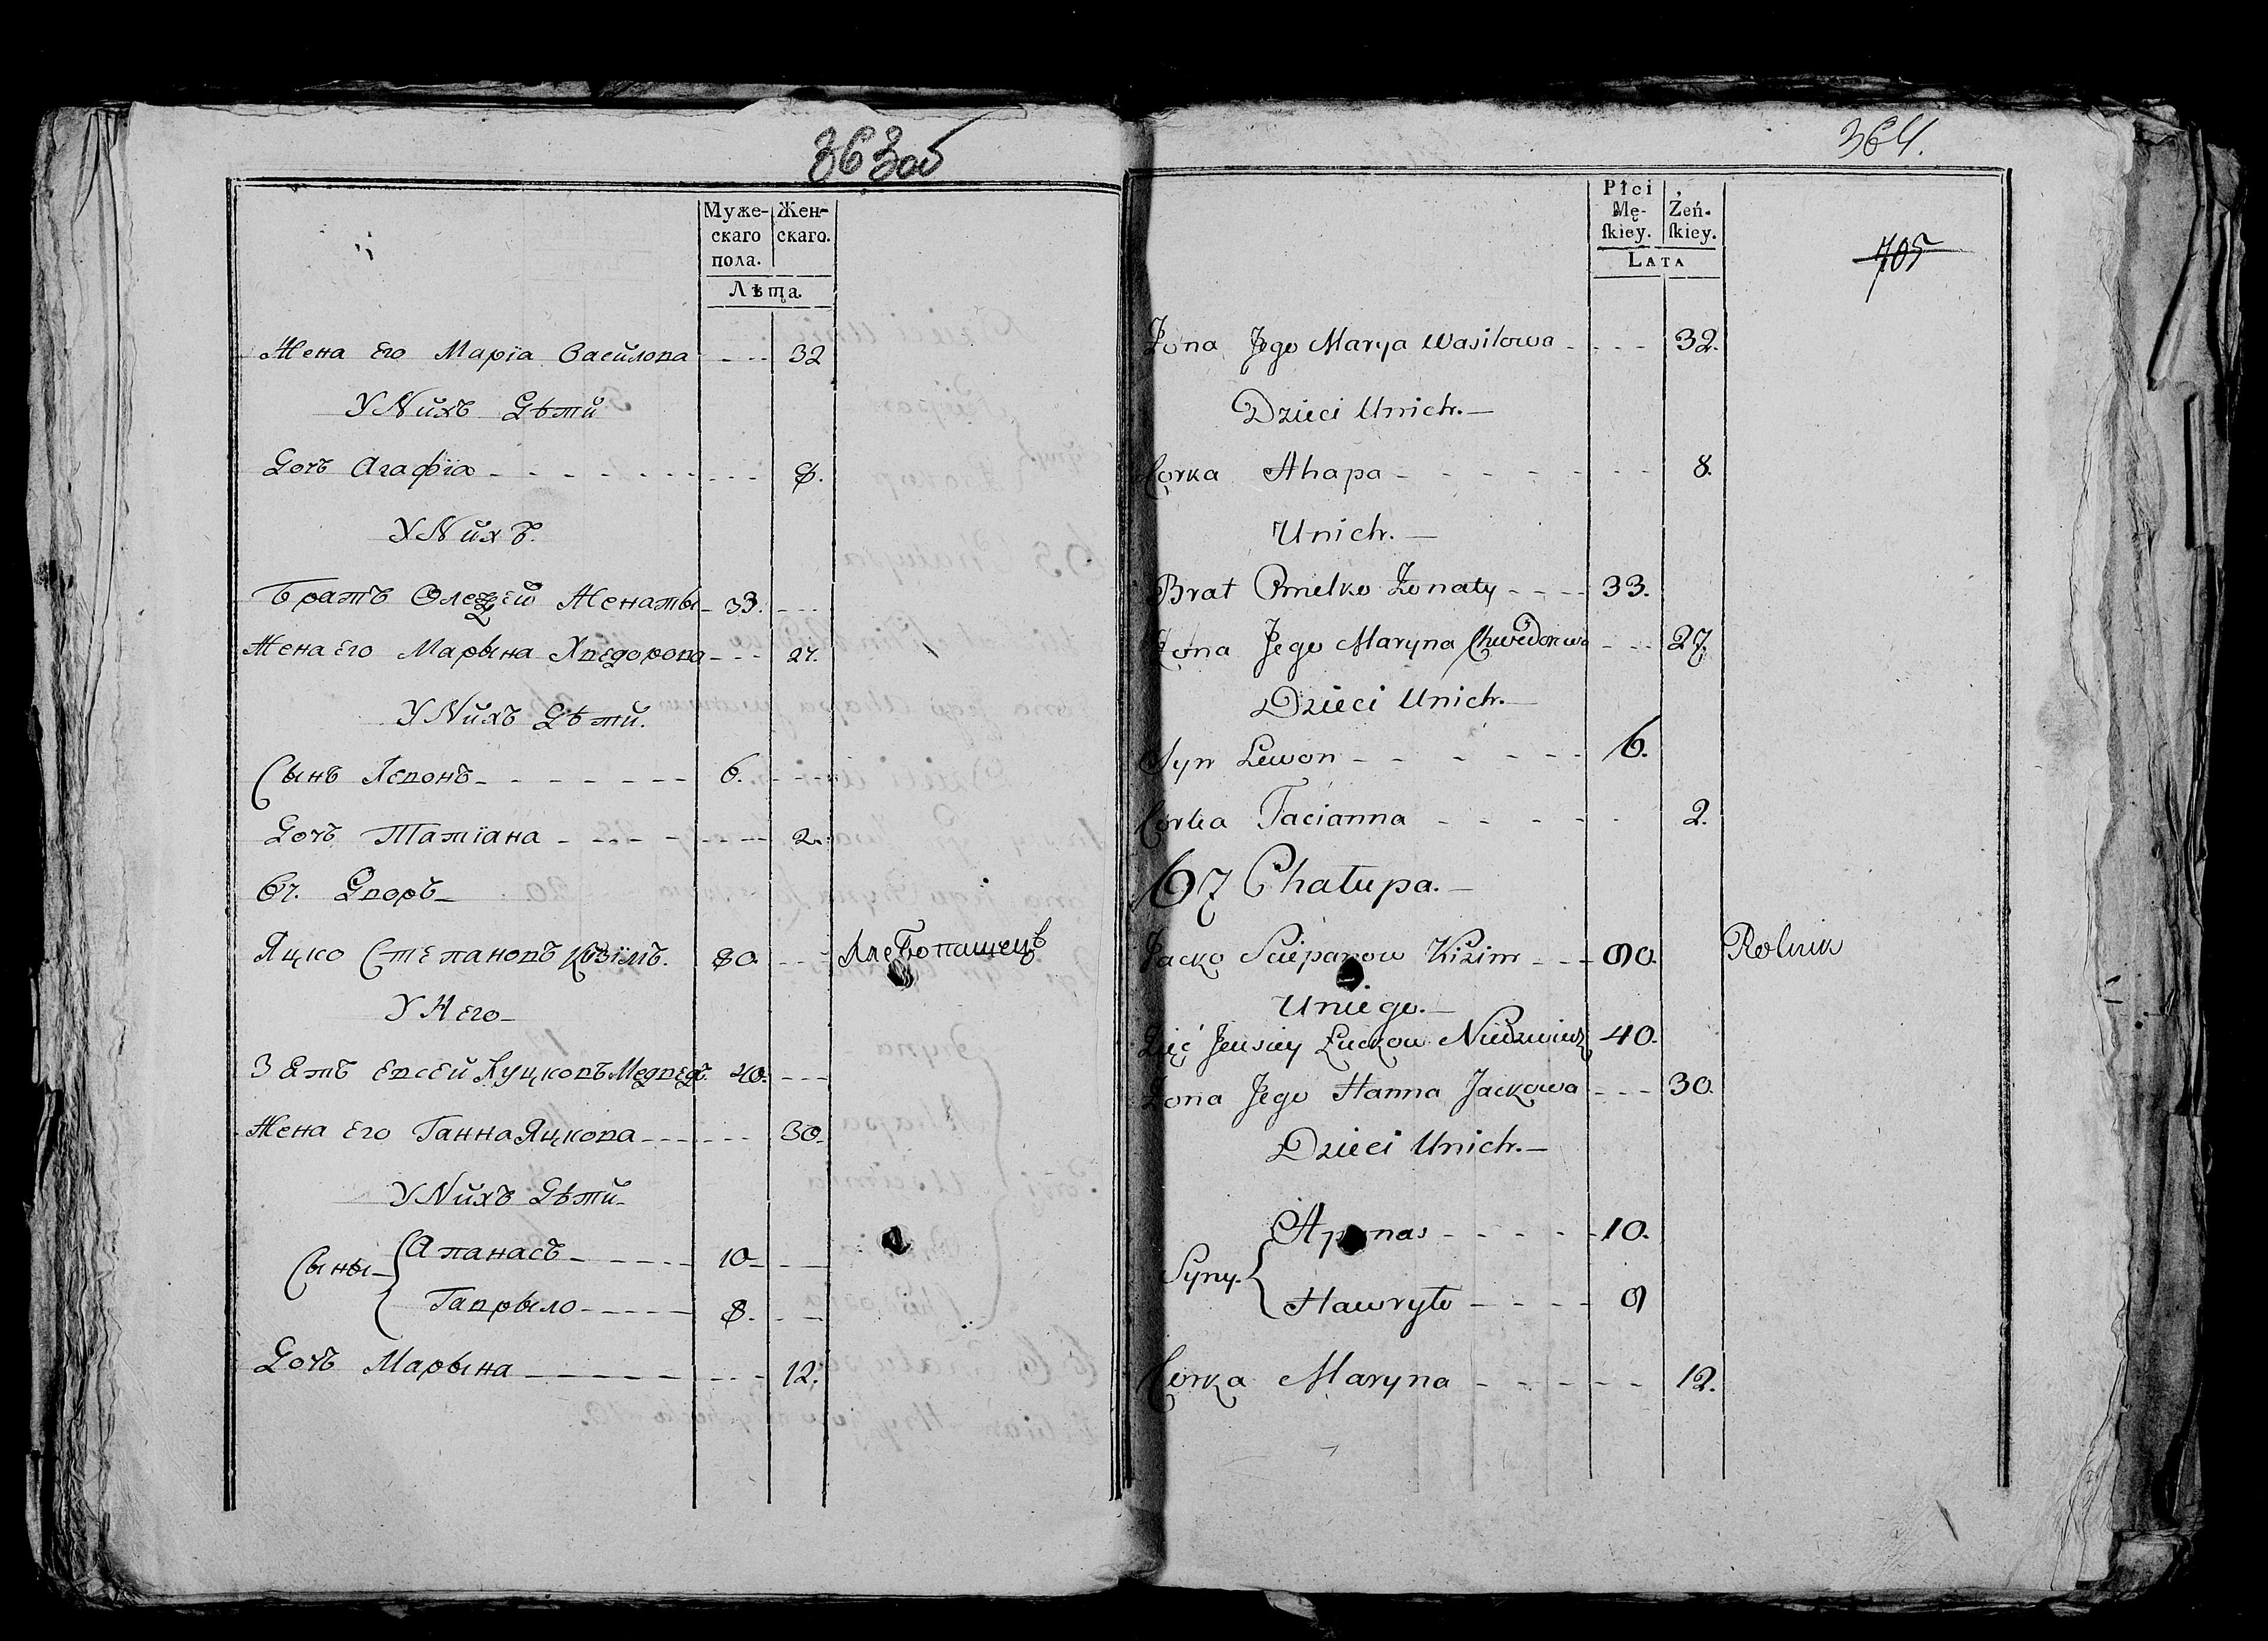 363об
Муже-
скаго
пола.
Жен-
скаго.
Лѣта.
Жена Его Марїа Василова - - - 32
У Нихъ Дѣти
Дочъ Агафїа - - - 8.
У Нихъ.
Братъ Женаты - 33.
Жена Его Марына Хведорова - - - 27.
У Нихъ Дѣти.
Сынъ Левонъ - - - 6.
Дочъ Татїана - - - 2.
67. Дворъ
Яцко Степановъ Кизімъ. 80. Хлебопашецъ
У Него
Зять Евсей Луцковъ Медведъ. 40.
Жена Его Ганна Яцкова - - - 30.
У Нихъ Дѣти
Сыны
Апанасъ - - - 10
Гаврыло - - - 8.
Дочъ Марына - - - 12.
364.
Płci
Mę-
skiey.
Żeń-
skiey.
Lata
705
Żona Jego Marya Wasilowa - - - 32.
Dzieci Unich.
Corka Ahapa - - - 8.
Unich.
Brat Omelko Żonaty - - - 33.
Żona Jego Maryna Chwedorowa - - - 27.
Dzieci Unich.
Syn Lewon - - - 6.
Corka Tacianna - - - 2.
67 Chałupa.
Jacko Sciepanow Kizim - - - 80. Rolnik
Uniego.
Zięć Jeusiey Łuckow Niedzwiedz 40.
Żona Jego Hanna Jackowa - - - 30.
Dzieci Unich.
Syny.
Apanas - - - 10.
Hawryło - - - 8
Corka Maryna - - - 12.